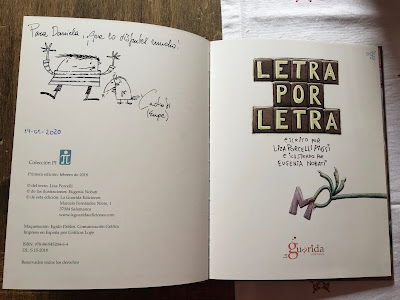 Para Daniela, ¡que lo disfrutes mucho!
17-01-2020
Colección PI
Primera edición: febrero de 2019
© del texto: Liza Porcelli
© de las ilustraciones: Eugenia Nobati
© de esta edición: La Guarida Ediciones
37004 Salamanca
www.laguaridaediciones.com
Impreso en España por Gráficas Lope
Reservados todos los derechos
LETRA
POR
LETRA
escrito por
LIZA PORCELLI PIUSSI
e ilustrado por
EUGENIA NOBATI
M
guarida